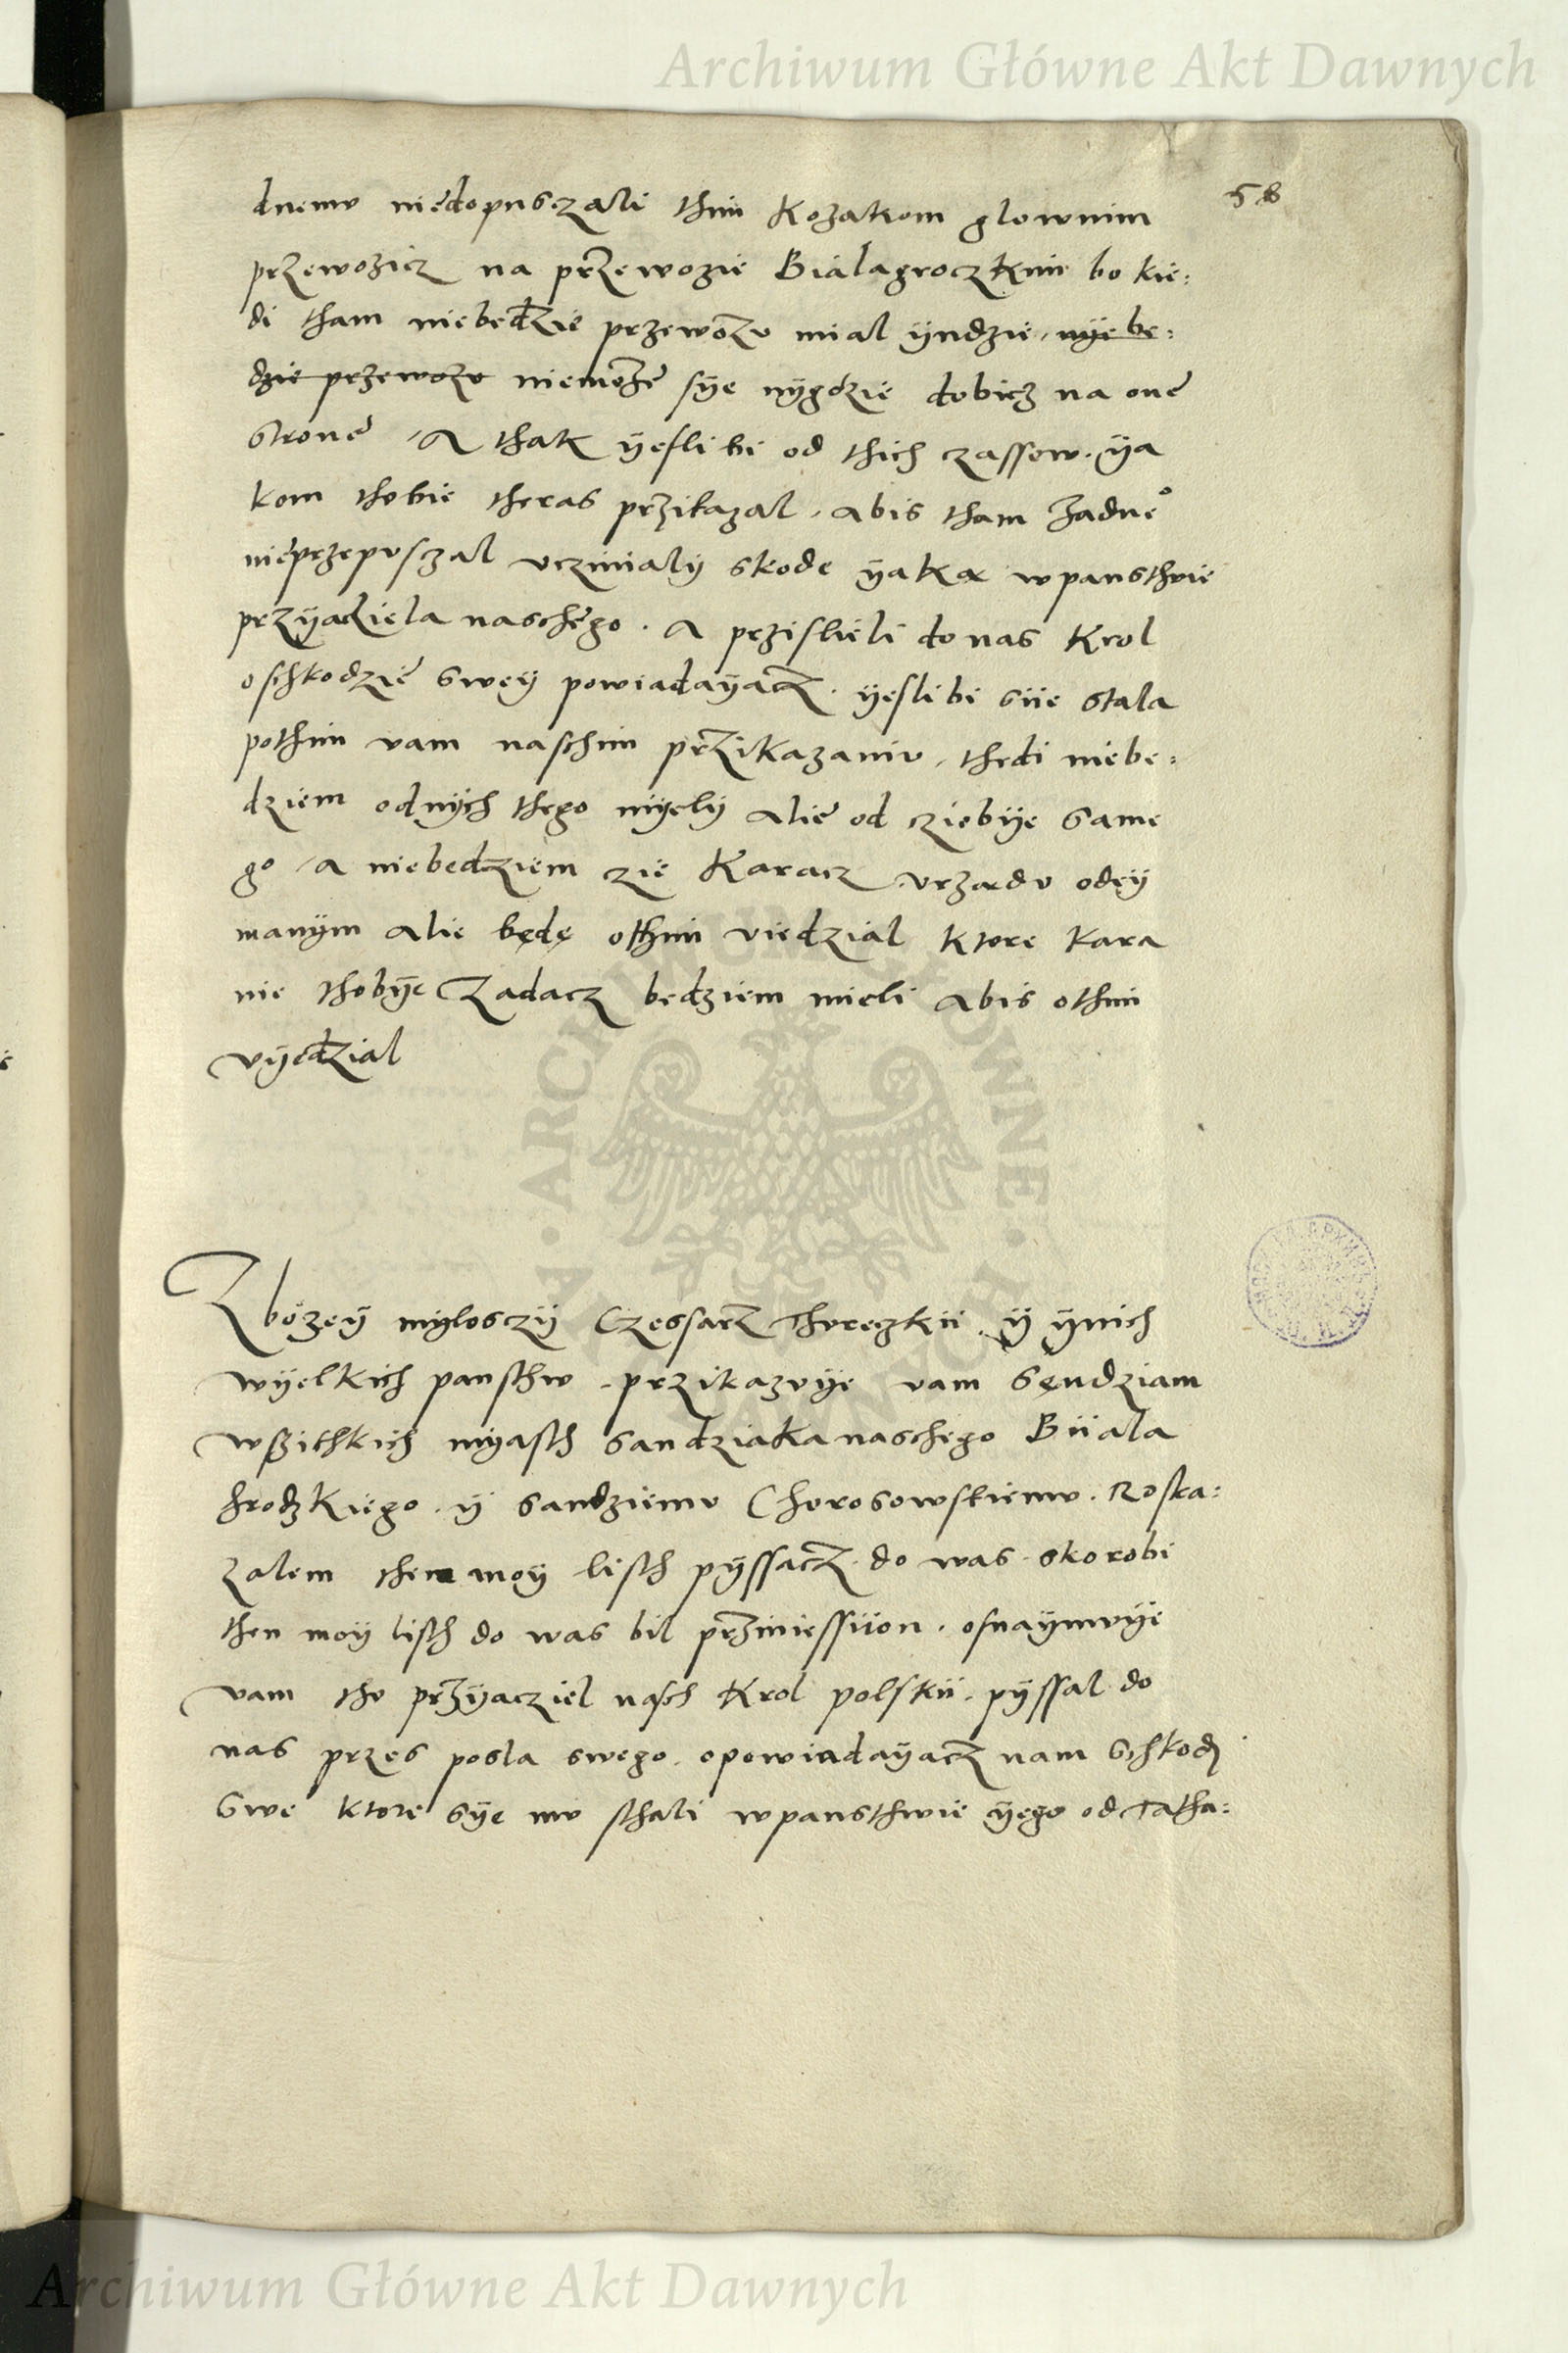 Archiwum Główne Akt Dawnych
58
dnemv niedopusczali thim Kozakom glownim
przewozicz na przewozie Bialagroczkim bo kie:
di tham niebedzie przewozv mial ÿndzie, nÿe be:
dzie przewozv niemoze sÿe nÿgdzie dobicz na one
strone, A thak ÿesli bi od thich czassow. ÿa
kom thobie theras przikazal, abis tham zadne°
nieprzepusczal vczinialÿ skode ÿaka wpansthvie
przÿaciela naschego. A przislieli do nas Krol
oschkodzie sweÿ powiadaÿacz. ÿesli bi siie stala
pothim vam naschim przikazaniv, thedi niebe:
dziem odnÿch thego mÿelÿ alie od cziebÿe same
go, a niebedziem zie Karacz vrzardv odeÿ
manÿm alie będę othim viedzial Ktore Kara
nie thobÿe Zadacz bedziem mieli abis othim
vÿedzial
Zbozeÿ mÿlosczÿ Czessarz Thvreczkii ÿ ÿnich
wÿelkich pansthw, przikazvÿe vam sęndziam
wszithkich mÿasth sandziaka naschego Biiala
hrodzkiego. ÿ sandziemv Chorosowskiemv. Roska:
zalem then moÿ listh pÿssacz. do was. skorobi
then moÿ listh do was bil przniiessiion. osnaÿmvÿe
vam tho przÿacziel nasch Krol polskii. pÿssal do
nas przes posla swego. opowiadaÿacz nam schkodj
swe ktore sÿe mv sthali wpansthwie ÿego od Tatha:
Archiwum Główne Akt Dawnych